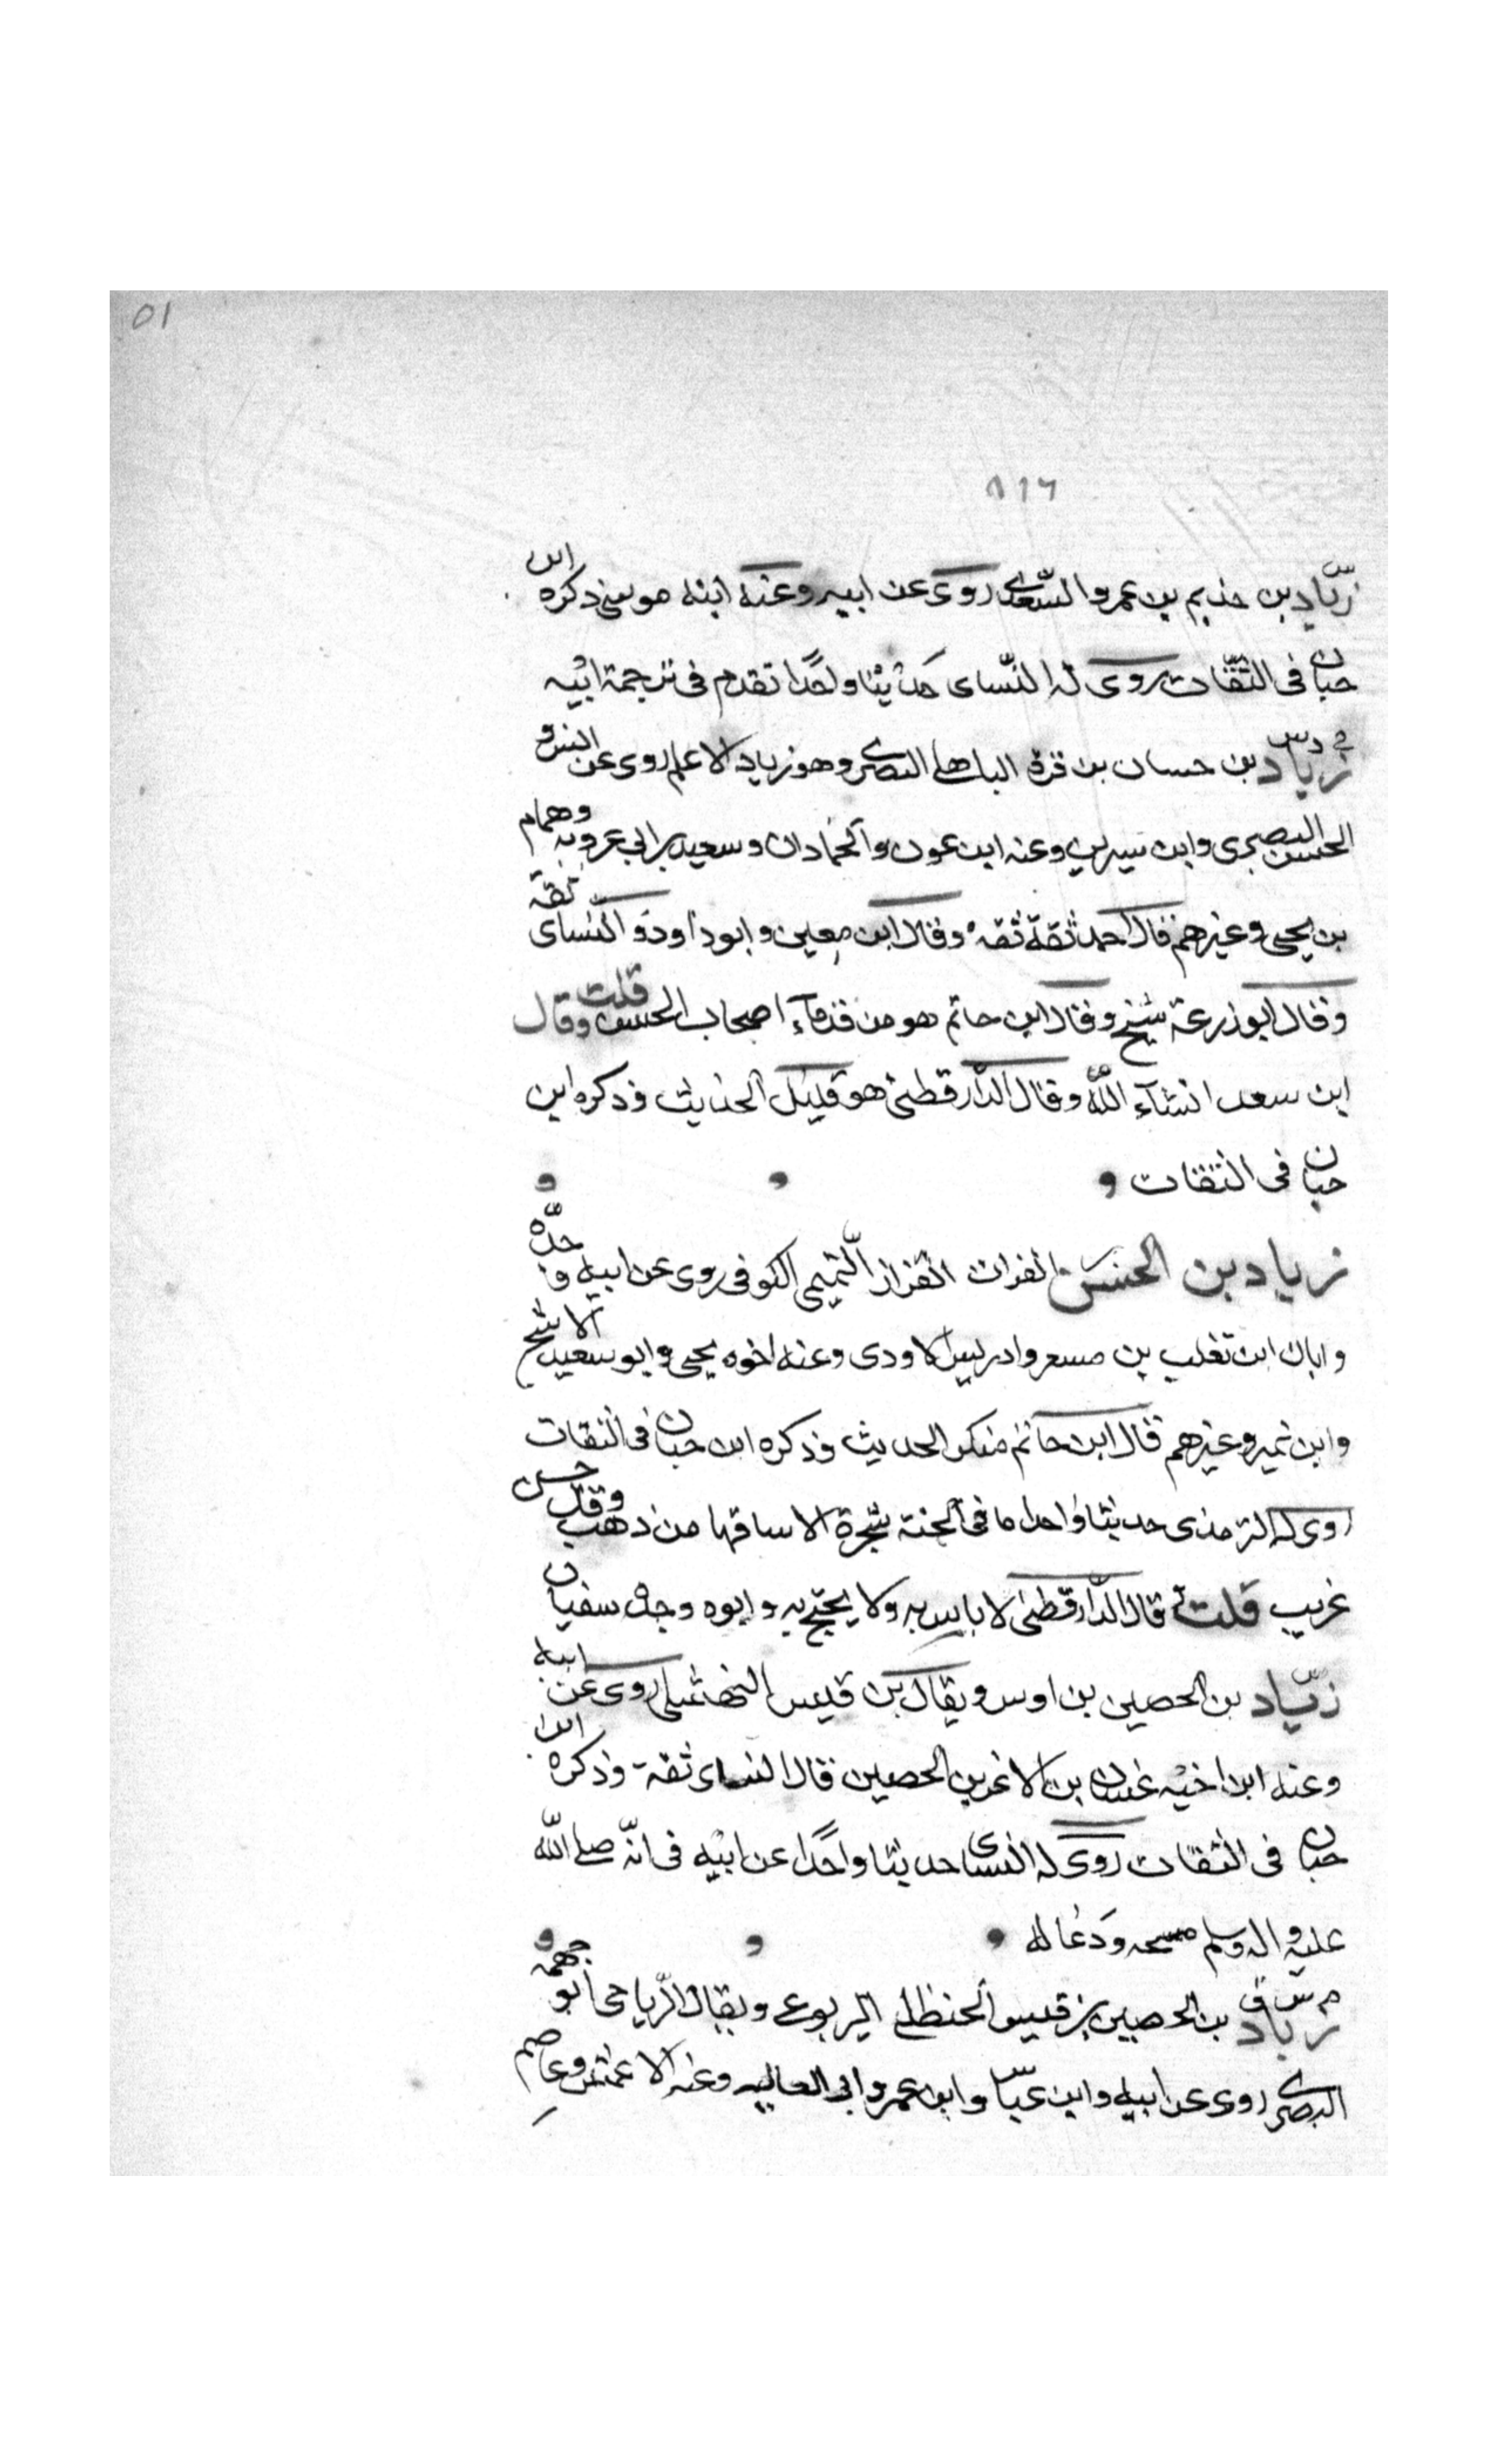 ٥١
٨١٦
س
زياد بن حذيم بن عمرو السعدى روى عن ابيه وعنه ابنه موسى ذكره ابن
حبان فى الثقات روى له النساى حديثا واحدا تقدم فى ترجمة ابيه
خ د س
زياد بن حسان بن قرة الباهلى البصرى وهو زياد الاعلم روى عن انس و
الحسن البصرى وابن سيرين وعنه ابن عون والحمادان وسعيد بن ابى عروبة وهمام
بن يحيى وغيرهم قال احمد ثقة ثقه وقال ابن معين وابو داود والنساى ثقة
وقال ابو زرعة شيخ وقال ابن حاتم هو من قدماء اصحاب الحسن قلت وقال
ابن سعد انشآء الله وقال الدارقطنى هو قليل الحديث وذكره ابن
حبان فى الثقات
زياد بن الحسن بن الفرات القزاز التميمى الكوفى روى عن ابيه وجده
وابان ابن تغلب بن مسعر وادريس الاودى وعنه اخوه يحيى وابو سعيد الاشج
وابن نمير وغيرهم قال ابن حاتم منكر الحديث وذكره ابن حبان فى الثقات
روى له الترمذى حديثا واحدا ما فى الجنة شجرة الا ساقها من ذهب وقال حسن
غريب قلت قال الدارقطنى لا باس به ولا يحتج به وابوه وجده سفيان
س
زياد بن الحصين بن اوس ويقال بن قيس النهشلى روى عن ابيه
وعنه ابن اخيه غسان بن الاغر بن الحصين قال النساى ثقة وذكره ابن
حبان فى الثقات روى له النساى حديثا واحدا عن ابيه فى انه صلى الله
عليه واله وسلم مسحه ودعا له
م س ق
زياد بن الحصين بن قيس الحنظلى اليربوعى ويقال الرياحى ابو جهمه
البصرى روى عن ابيه وابن عباس وابن عمر وابى العاليه وعنه الاعمش وعاصم